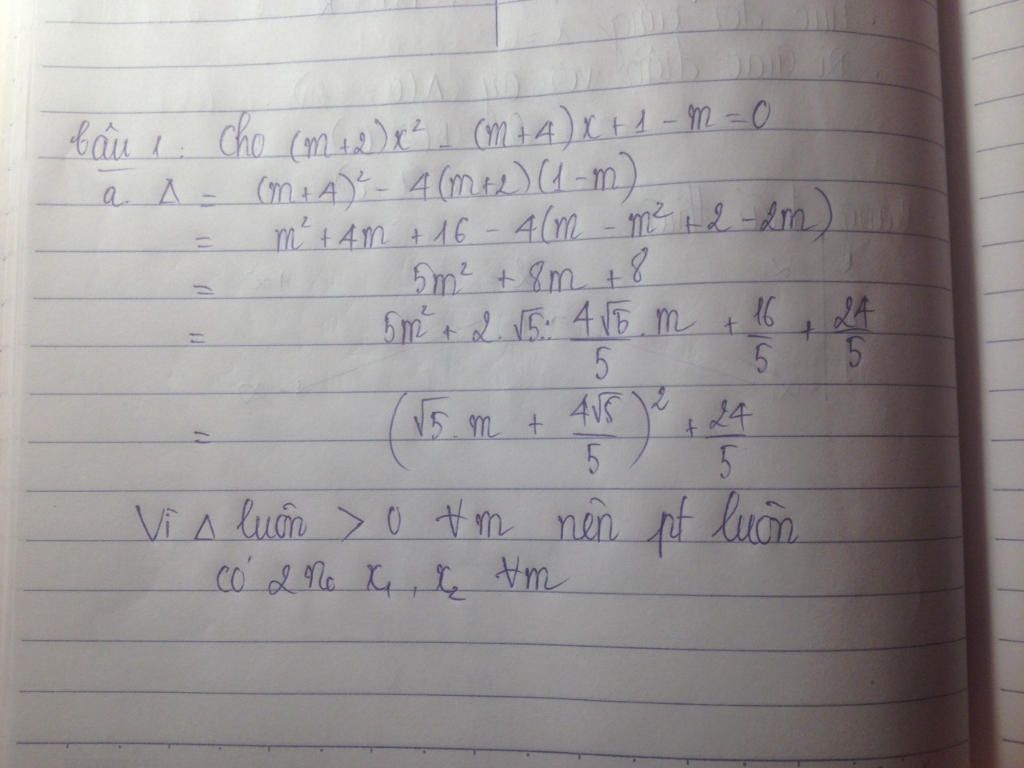 Câu 1. Cho (m+2)x² - (m+4)x + 1 - m = 0
a. Δ = (m+4)² - 4(m+2)(1-m)
= m² + 4m + 16 - 4(m - m² + 2 - 2m)
= 5m² + 8m + 8
= 5m² + 2.√5. 4√5/5 .m + 16/5 + 24/5
= (√5.m + 4√5/5)² + 24/5
Vì Δ luôn > 0 ∀m nên pt luôn
có 2 n₀ x₁, x₂ ∀m